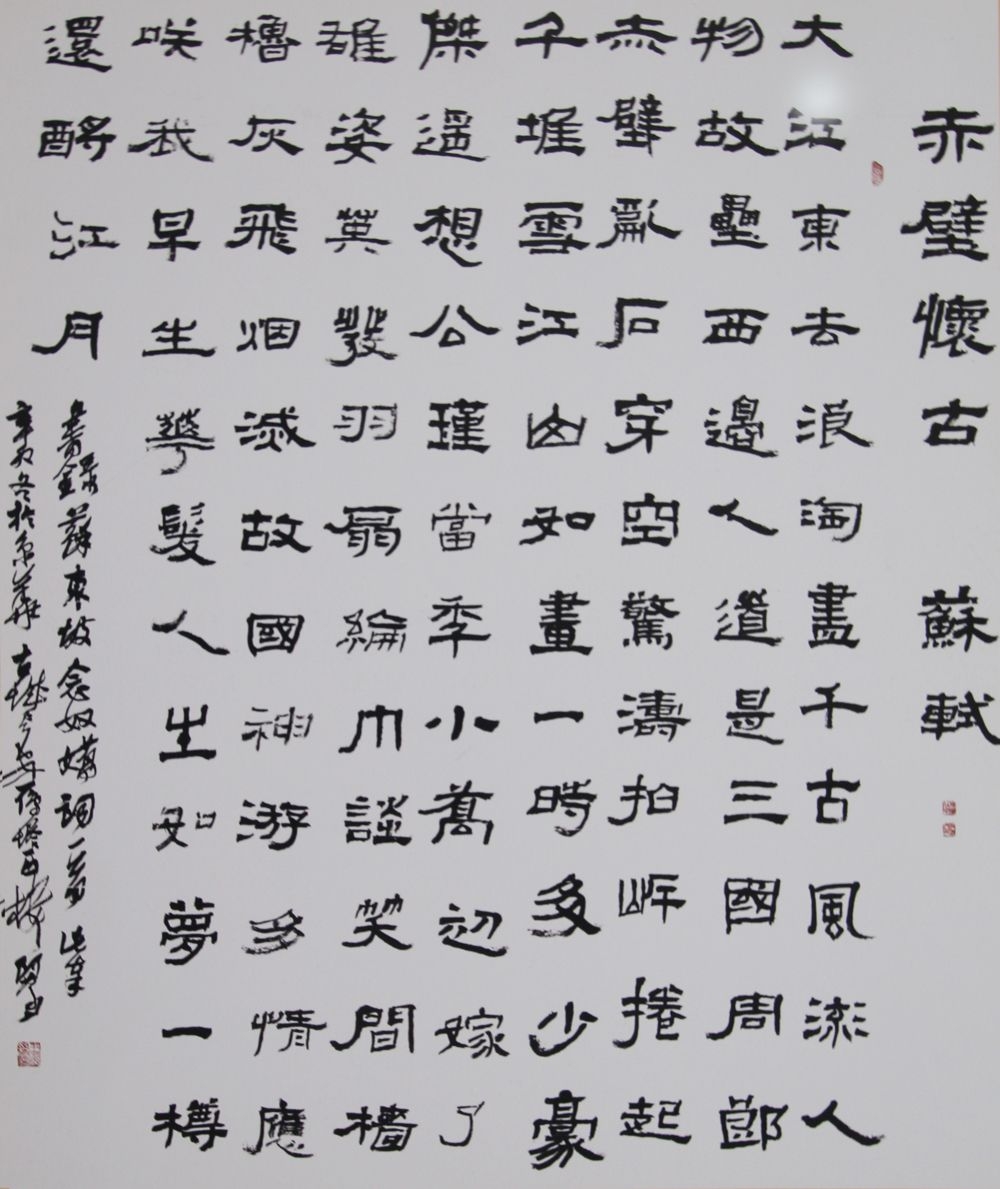 赤壁懷古 蘇軾
大江東去浪淘盡千古風流人
物故壘西邊人道是三國周郎
赤壁亂石穿空驚濤拍岸捲起
千堆雪江山如畫一時多少豪
傑遥想公瑾當秊小喬初嫁了
雄姿英發羽扇綸巾談笑間檣
櫓灰飛烟滅故國神游多情應
咲我早生華髮人生如夢一樽
還酹江月
錄蘇東坡念奴嬌詞一首
辛卯冬於京華